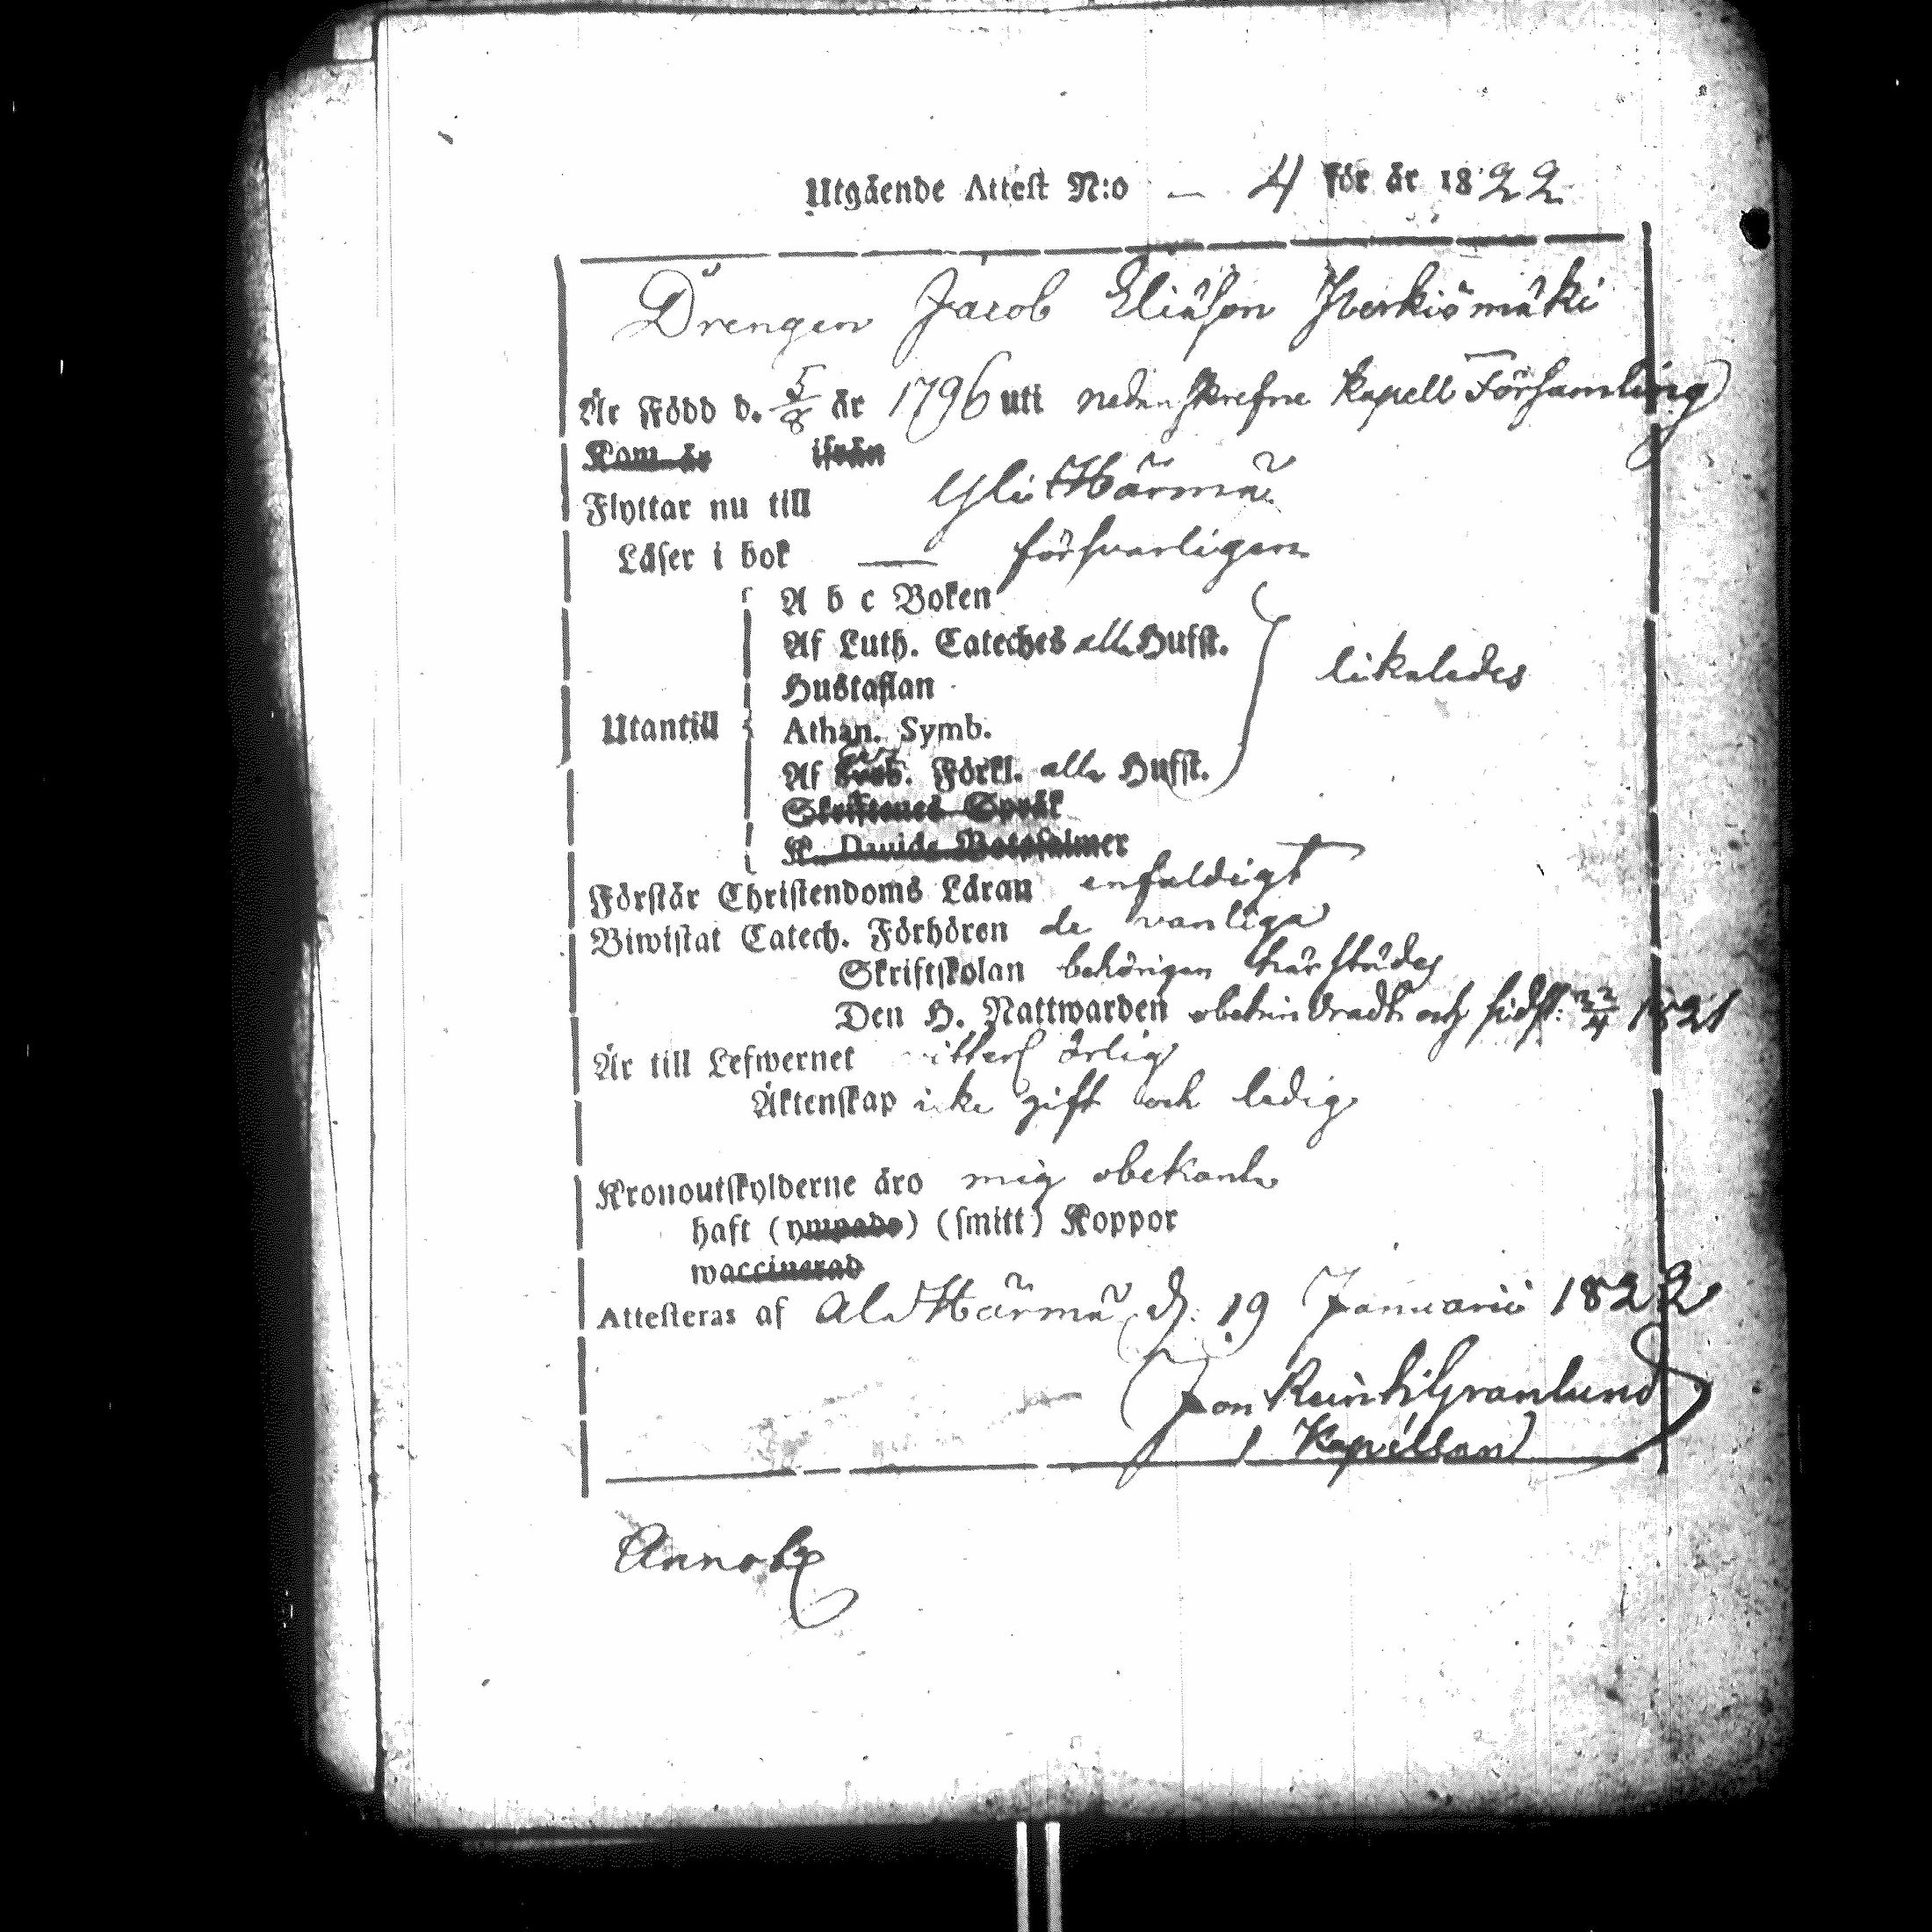 Utgående Attest N:o — 4 för år 1822
Drengen Jacob Eliäson Herkiömäki
Är Född d. 5/8 år 1796 uti nedanskrefne Kapell Församling
Kom år ifrån
Flyttar nu till Yli Härmä
Läser i bok — försvarligen
A b c Boken
Af Luth. Cateches alla Hufst.
Hustaflan
likalades
Utantill
Athan. Symb.
Af Förkl. alla Hufst.
Skriftenes Språk
K. Davids Botpsalmer
Förstår Christendoms Läran enfaldigt
Biwistat Catech. Förhören de vanliga
Skriftskolan behörigen härstädes
Den H. Nattwarden obehindradt och sidst: 22/4 1821
Är till Lefwernet ärlig
Äktenskap icke gift och ledig
Kronoutskylderne äro mig obekanta
haft (ympade) (smitt) Koppor
waccinerad
Attesteras af Ala Härmä d: 19 Januarii 1822
Granlund
Kapellan